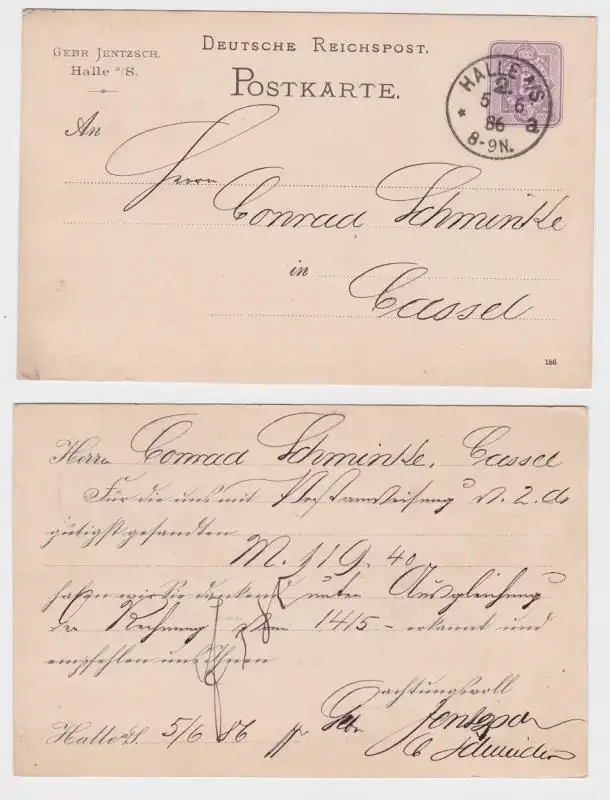 GEBR JENTZSCH.
Halle a/S.
DEUTSCHE REICHSPOST.
POSTKARTE.
HALLE A/S
2.
5 6
86 a.
8-9N.
An
Herrn
Conrad Schminke
in
Cassel
186
Herrn Conrad Schminke, Cassel
Für die uns mit Postanweisung v. 2. ds
gütigst gesandten
M. 119.40
haben wir Sie dankend unter Ausgleichung
der Rechnung vom 14/5 - erkannt und
empfehlen uns Ihnen
Achtungsvoll
Halle a/S. 5/6 86 pp Gebr Jentzsch
C Schneider